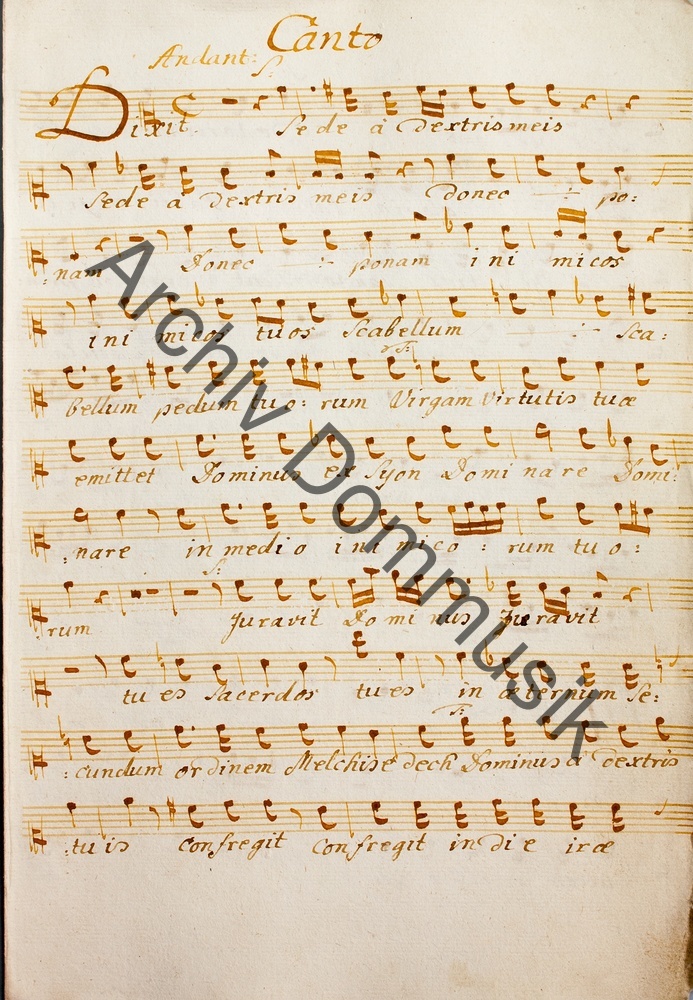 Canto
Andant: S:
Dixit Sede à Dextris meis
Sede à Dextris meis Donec ·/· po:
:nam Donec ·/· ponam ini micos
ini micos tuos Scabellum ·/· Sca:
bellum pedum tuo: rum Virgam Virtutis tuæ
emittet Dominus ex Syon Domi nare Domi:
:nare in medio ini mico: rum tuo:
S:
rum Juravit Domi nus Juravit
tu es Sacerdos tu es in æternum Se:
:cundum ordinem Melchisedech Dominus à Dextris
:tuis confregit Confregit in Die iræ
Archiv Dommusik